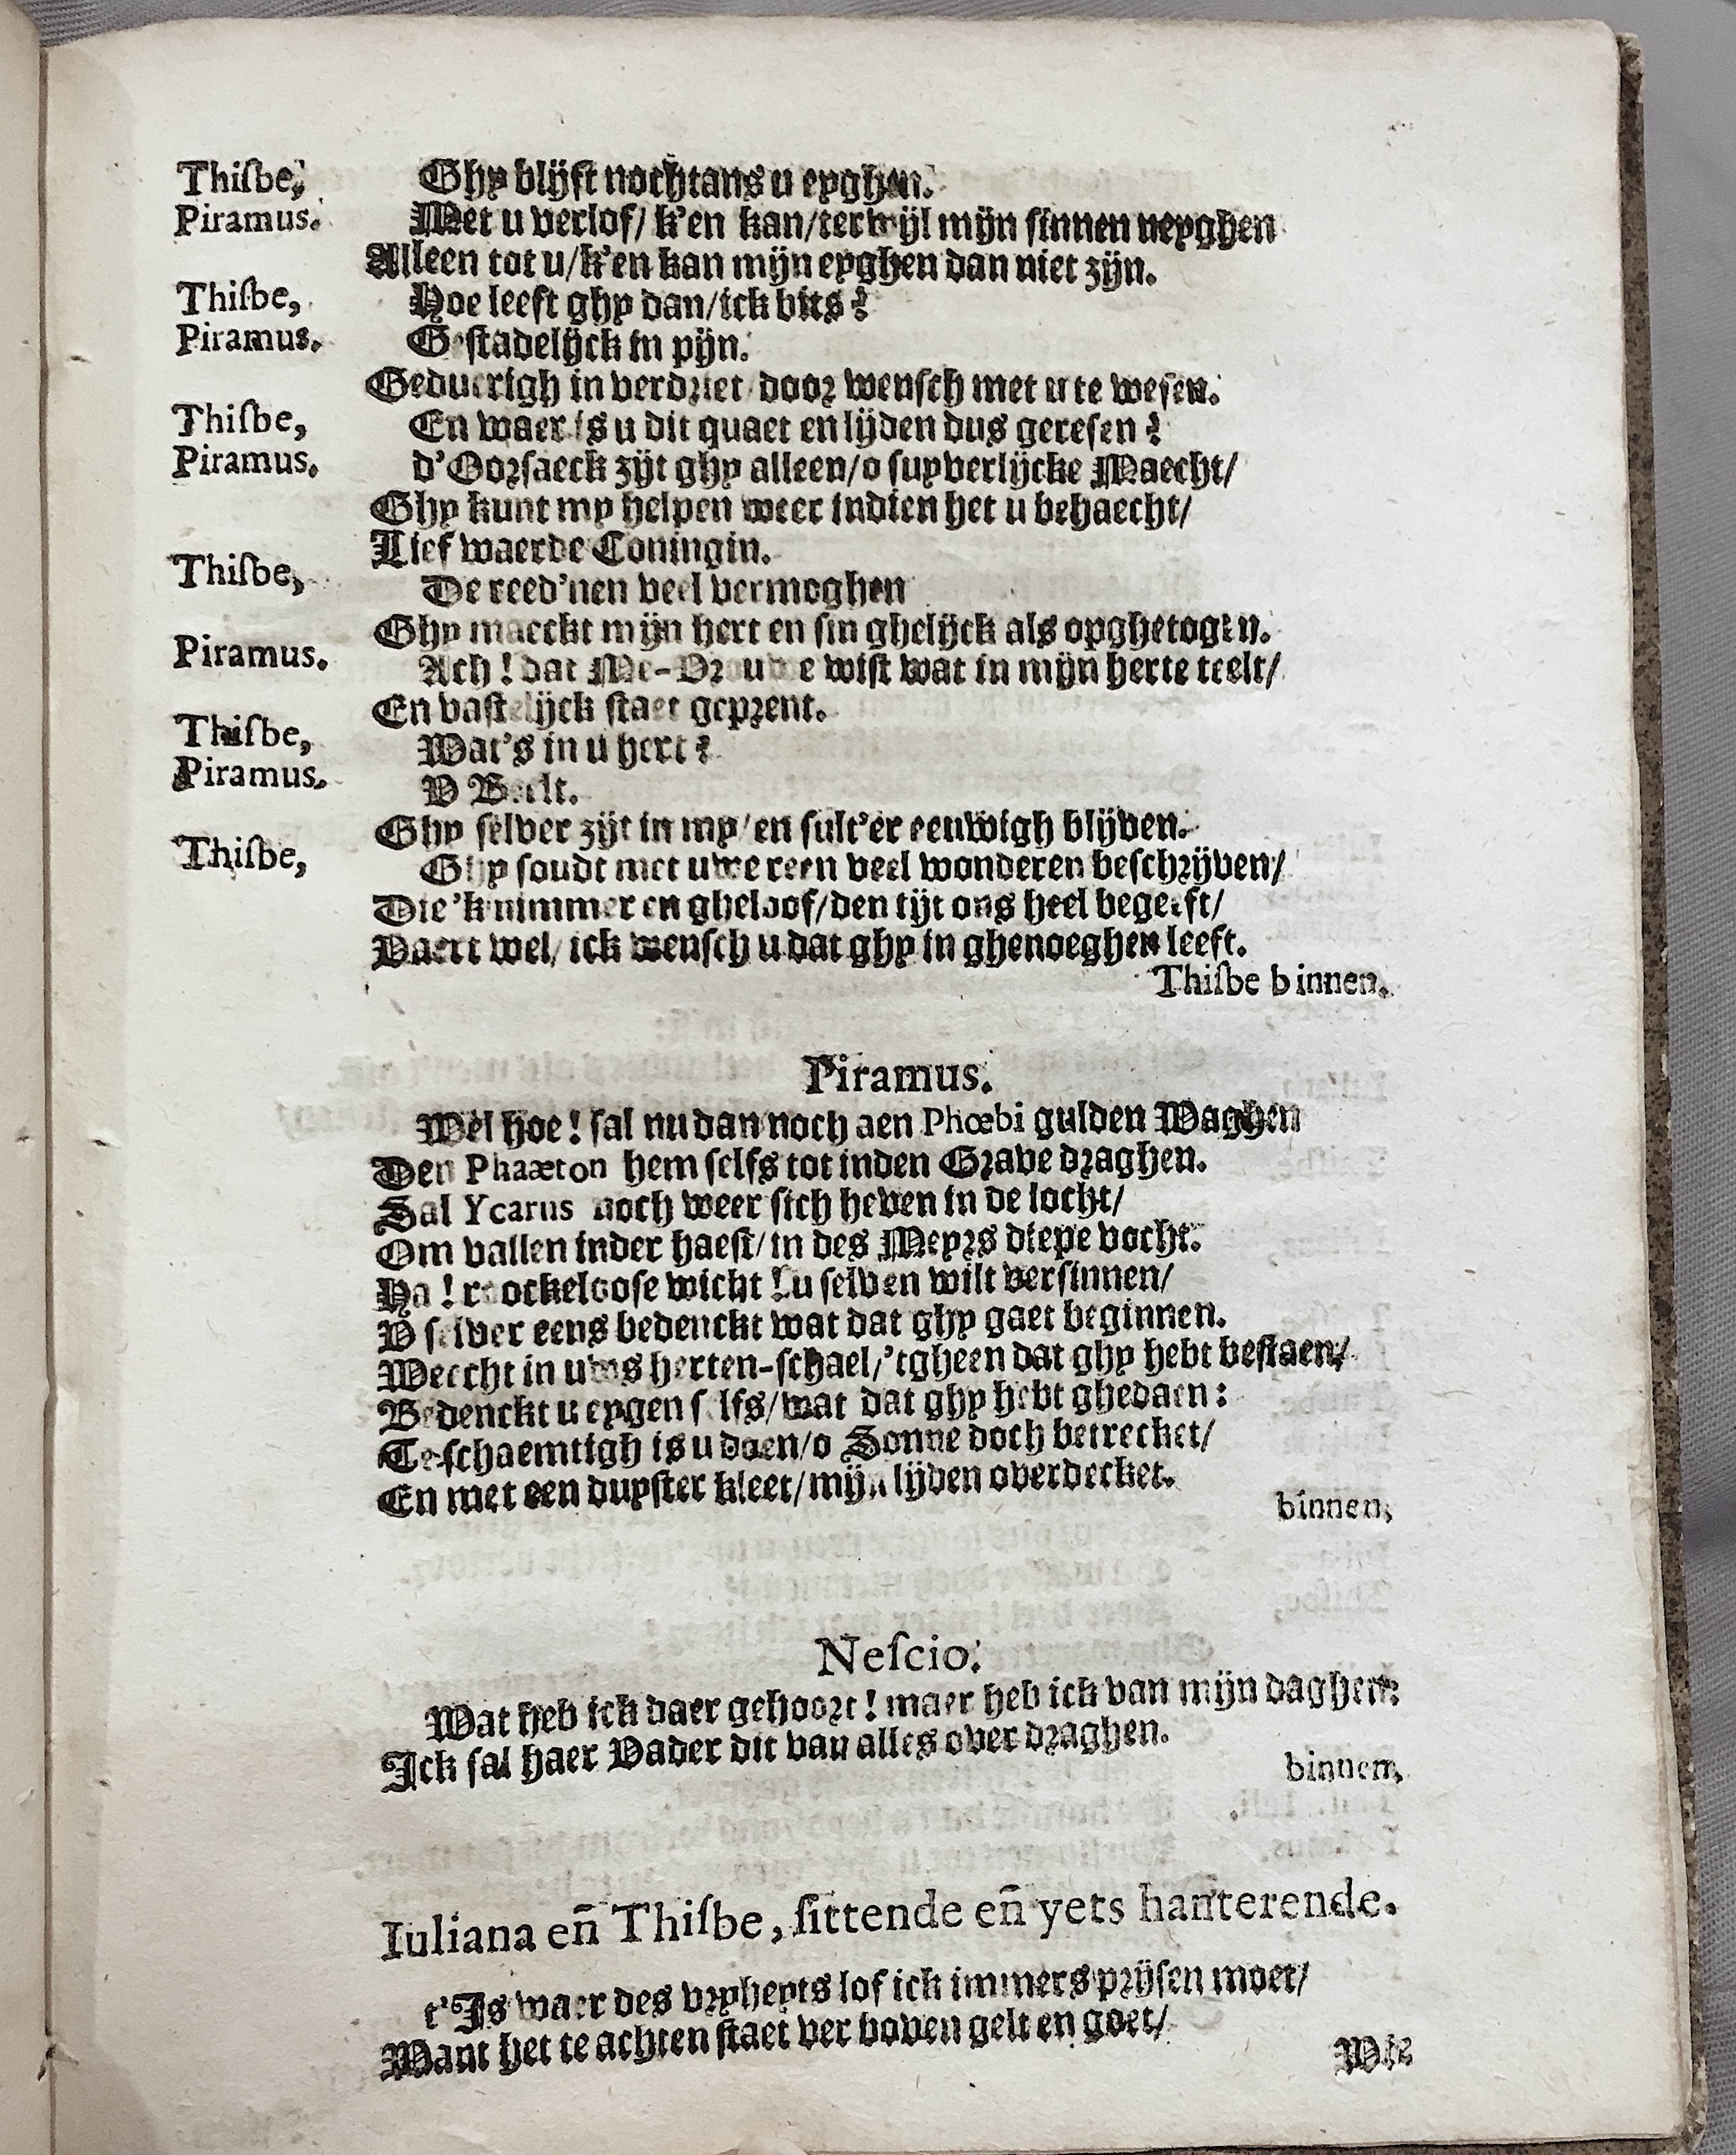 Thiſbe, Ghy blijft nochtans u eyghen.
Piramus. Met u verlof/ k'en kan/terwijl mijn sinnen neyghen
Alleen tot u/k'en kan mijn eyghen dan niet zijn.
Thiſbe, Hoe leeft ghy dan/ick bits?
Piramus. Gestadelijck in pijn.
Geduerigh in verdriet door wensch met u te wesen.
Thiſbe, En waer is u dit quaet en lijden dus geresen?
Piramus. d'Oorsaeck zijt ghy alleen/o suyverlijcke Maecht/
Ghy kunt my helpen weer indien het u behaecht/
Lief waerde Coningin.
Thiſbe, De reed'nen veel vermoghen
Ghy maeckt mijn hert en sin ghelijck als opghetogen.
Piramus. Ach! dat Me-Vrouwe wist wat in mijn herte teelt/
En vastelijck staet geprent.
Thiſbe, Wat's in u hert?
Piramus. V Beelt.
Ghy selver zijt in my/en sult'er eeuwigh blijven.
Thiſbe, Ghy soudt met uwe reen veel wonderen beschrijven/
Die 'k nimmer en gheloof/den tijt ons heel begeeft/
Vaert wel/ ick wensch u dat ghy in ghenoeghen leeft.
Thiſbe binnen.
Piramus.
Wel hoe! sal nu dan noch aen Phœbi gulden Waghen
Den Phaæton hem selfs tot inden Grave draghen.
Sal Ycarus noch weer sich heven in de locht/
Om vallen inder haest/in des Meyrs diepe vocht.
Ha! roockeloose wicht! u selven wilt versinnen/
V selver eens bedenckt wat dat ghy gaet beginnen.
Weecht in uwes herten-schael/'tgheen dat ghy hebt bestaen/
Bedenckt u eygen selfs/wat dat ghy hebt ghedaen:
Te-schaemtigh is u doen/o Sonne doch betrecket/
En met een duyster kleet/mijn lijden overdecket.
binnen,
Neſcio.
Wat heb ick daer gehoort! maer heb ick van mijn daghen:
Ick sal haer Vader dit van alles over draghen.
binnen,
Iuliana en̄ Thiſbe, ſittende en̄ yets hanterende.
t'Is waer des vryheyts lof ick immers prijsen moet/
Want het te achten staet ver boven gelt en goet/
Wie